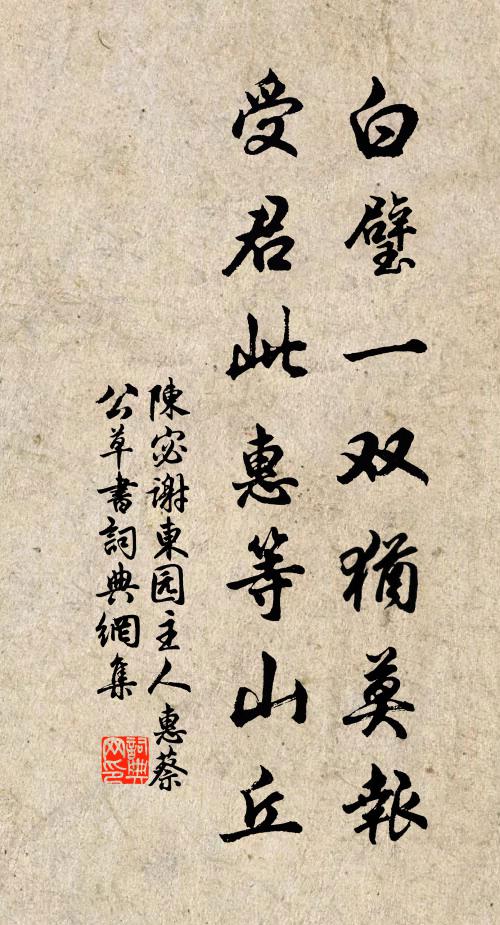 白璧一双猶莫報
受君此惠等山丘
陳宓謝東园主人惠蔡
公草書詞典網集
詞典網印